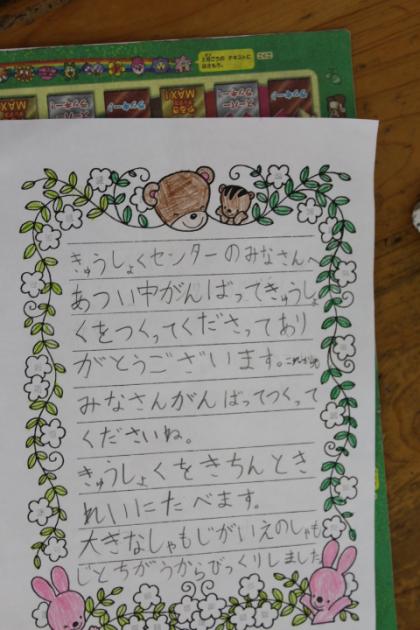 きゅうしょくセンターのみなさんへ
あつい中がんばってきゅうしょ
くをつくってくださってあり
がとうございます。これからも
みなさんがんばってつくって
くださいね。
きゅうしょくをきちんとき
れいにたべます。
大きなしゃもじがいえのしゃも
じとちがうからびっくりしました